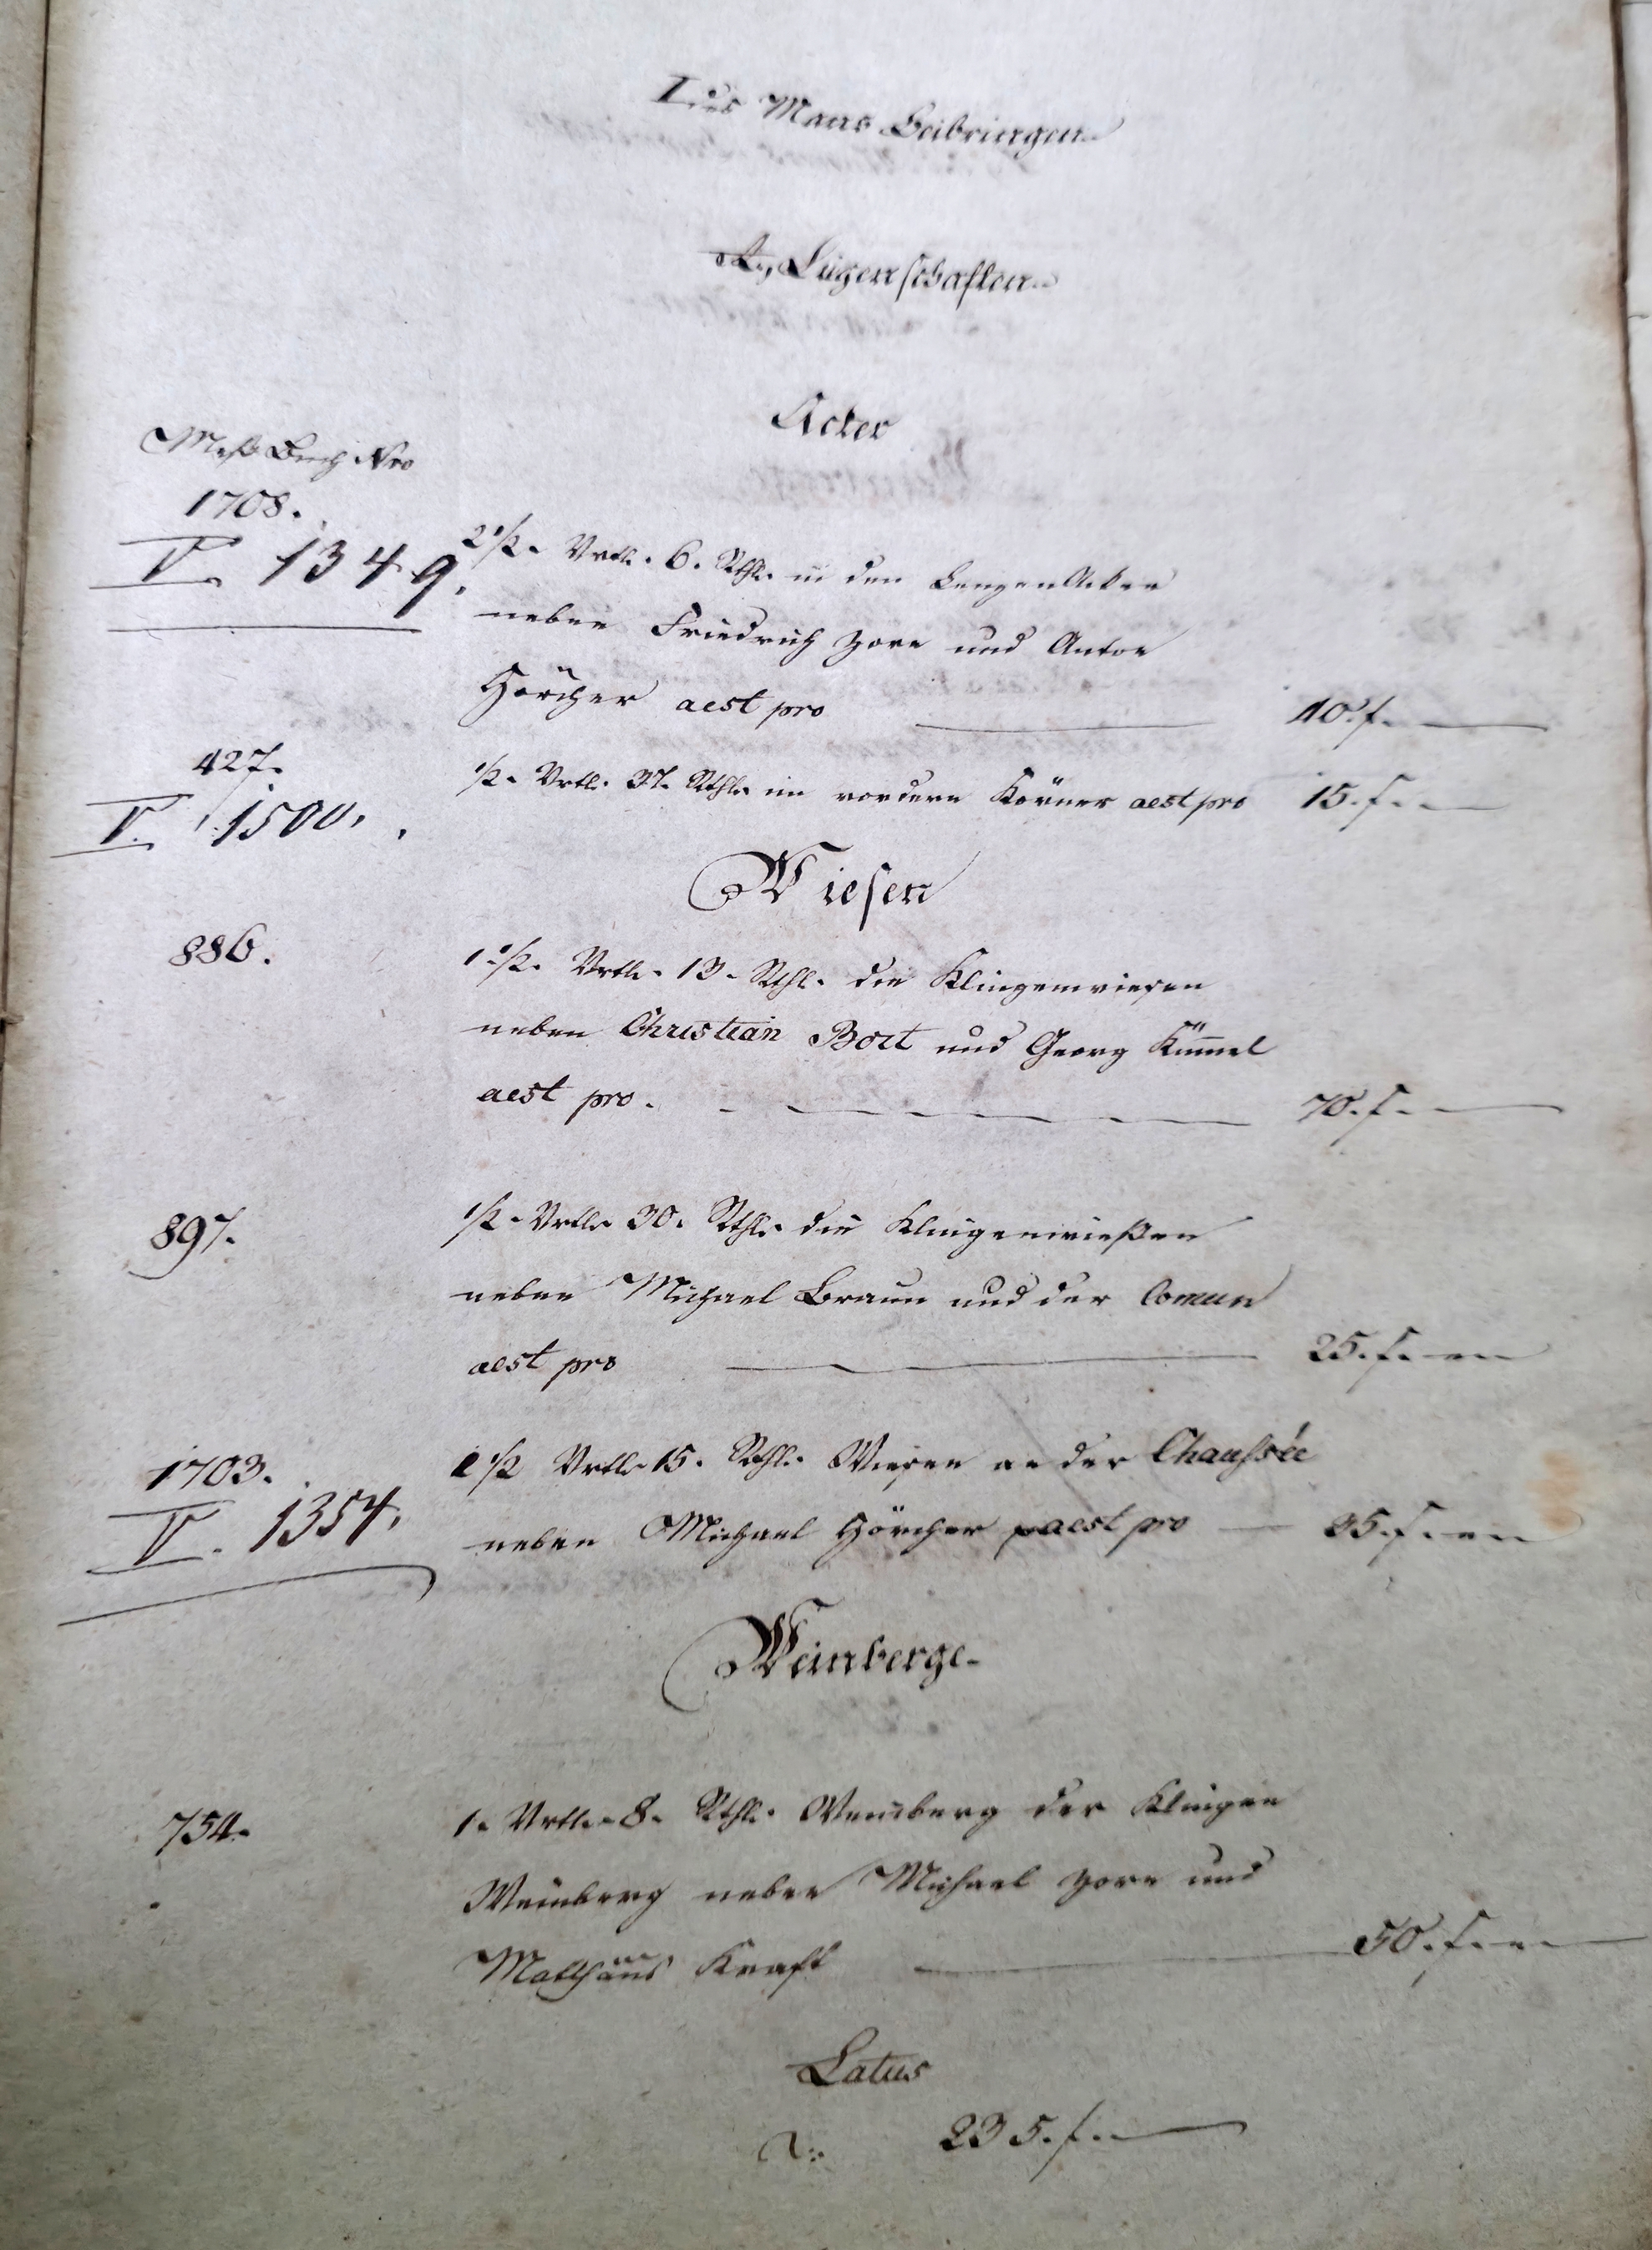 I. Des Mans Beibringen.
A, Liegenschaften.
Äcker
Meß Buch Nro
1708.
V. 1349.
2 1/2. Vrtl. 6. Rthl. in den Langenäcker
neben Friedrich Zorn und Anton
Hörcher aest pro 40. f.
427.
V. 1500.
1/2. Vrtl. 37. Rthl. im vordern Körner aest pro 15. f.
Wiesen
886.
1 1/2. Vrtl. 13. Rthl. die Klingenwiesen
neben Christian Bort und Georg Kümmel
aest pro. 70. f.
897.
1/2. Vrtl. 30. Rthl. die Klingenwießen
neben Michael Braun und der Comun
aest pro 25. f.
1703.
V. 1354.
1/2 Vrtl. 15. Rthl. Wiesen an der Chaussée
neben Michael Hörcher aest pro 35. f.
Weinberge
754.
1. Vrtl. 8. Rthl. Weinberg der Klingen
Weinberg neben Michael Zorn und
Matthäus Kraft 50. f.
Latus
235. f.